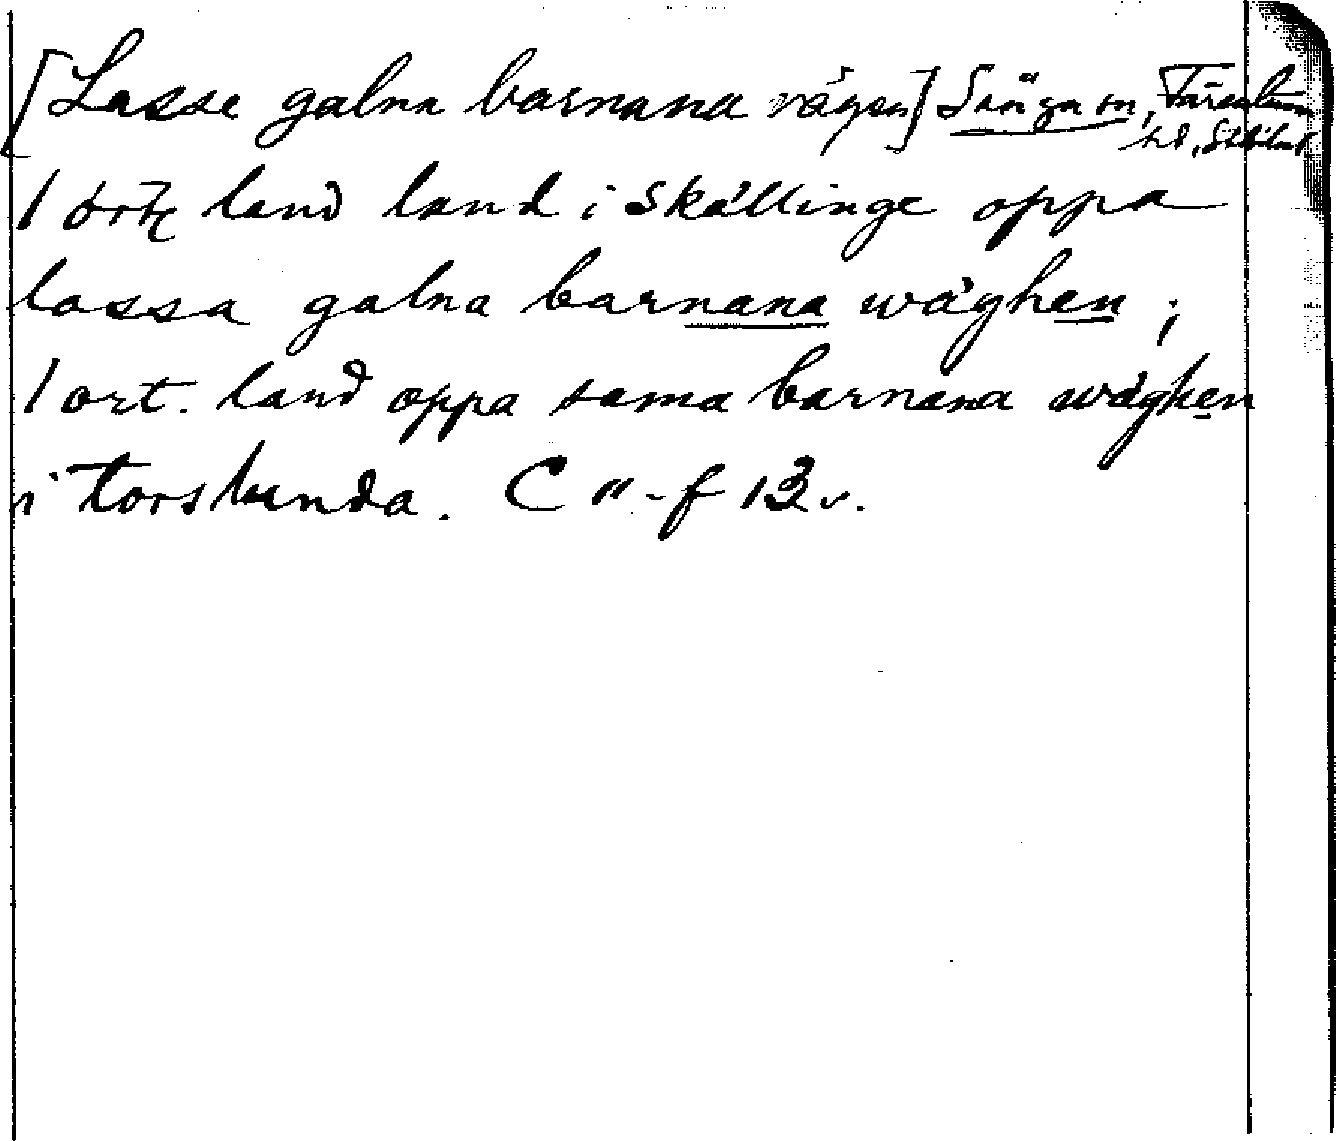 [Lasse galna barnana vägen] Sånga sn, Färentuna
hd, Sthlms l.
1 örtz land land i Skällinge oppa
lassa galna barnana wäghen ;
1 ort. land oppa sama barnana wäghen
i torslunda. C 11 - f 13 v.